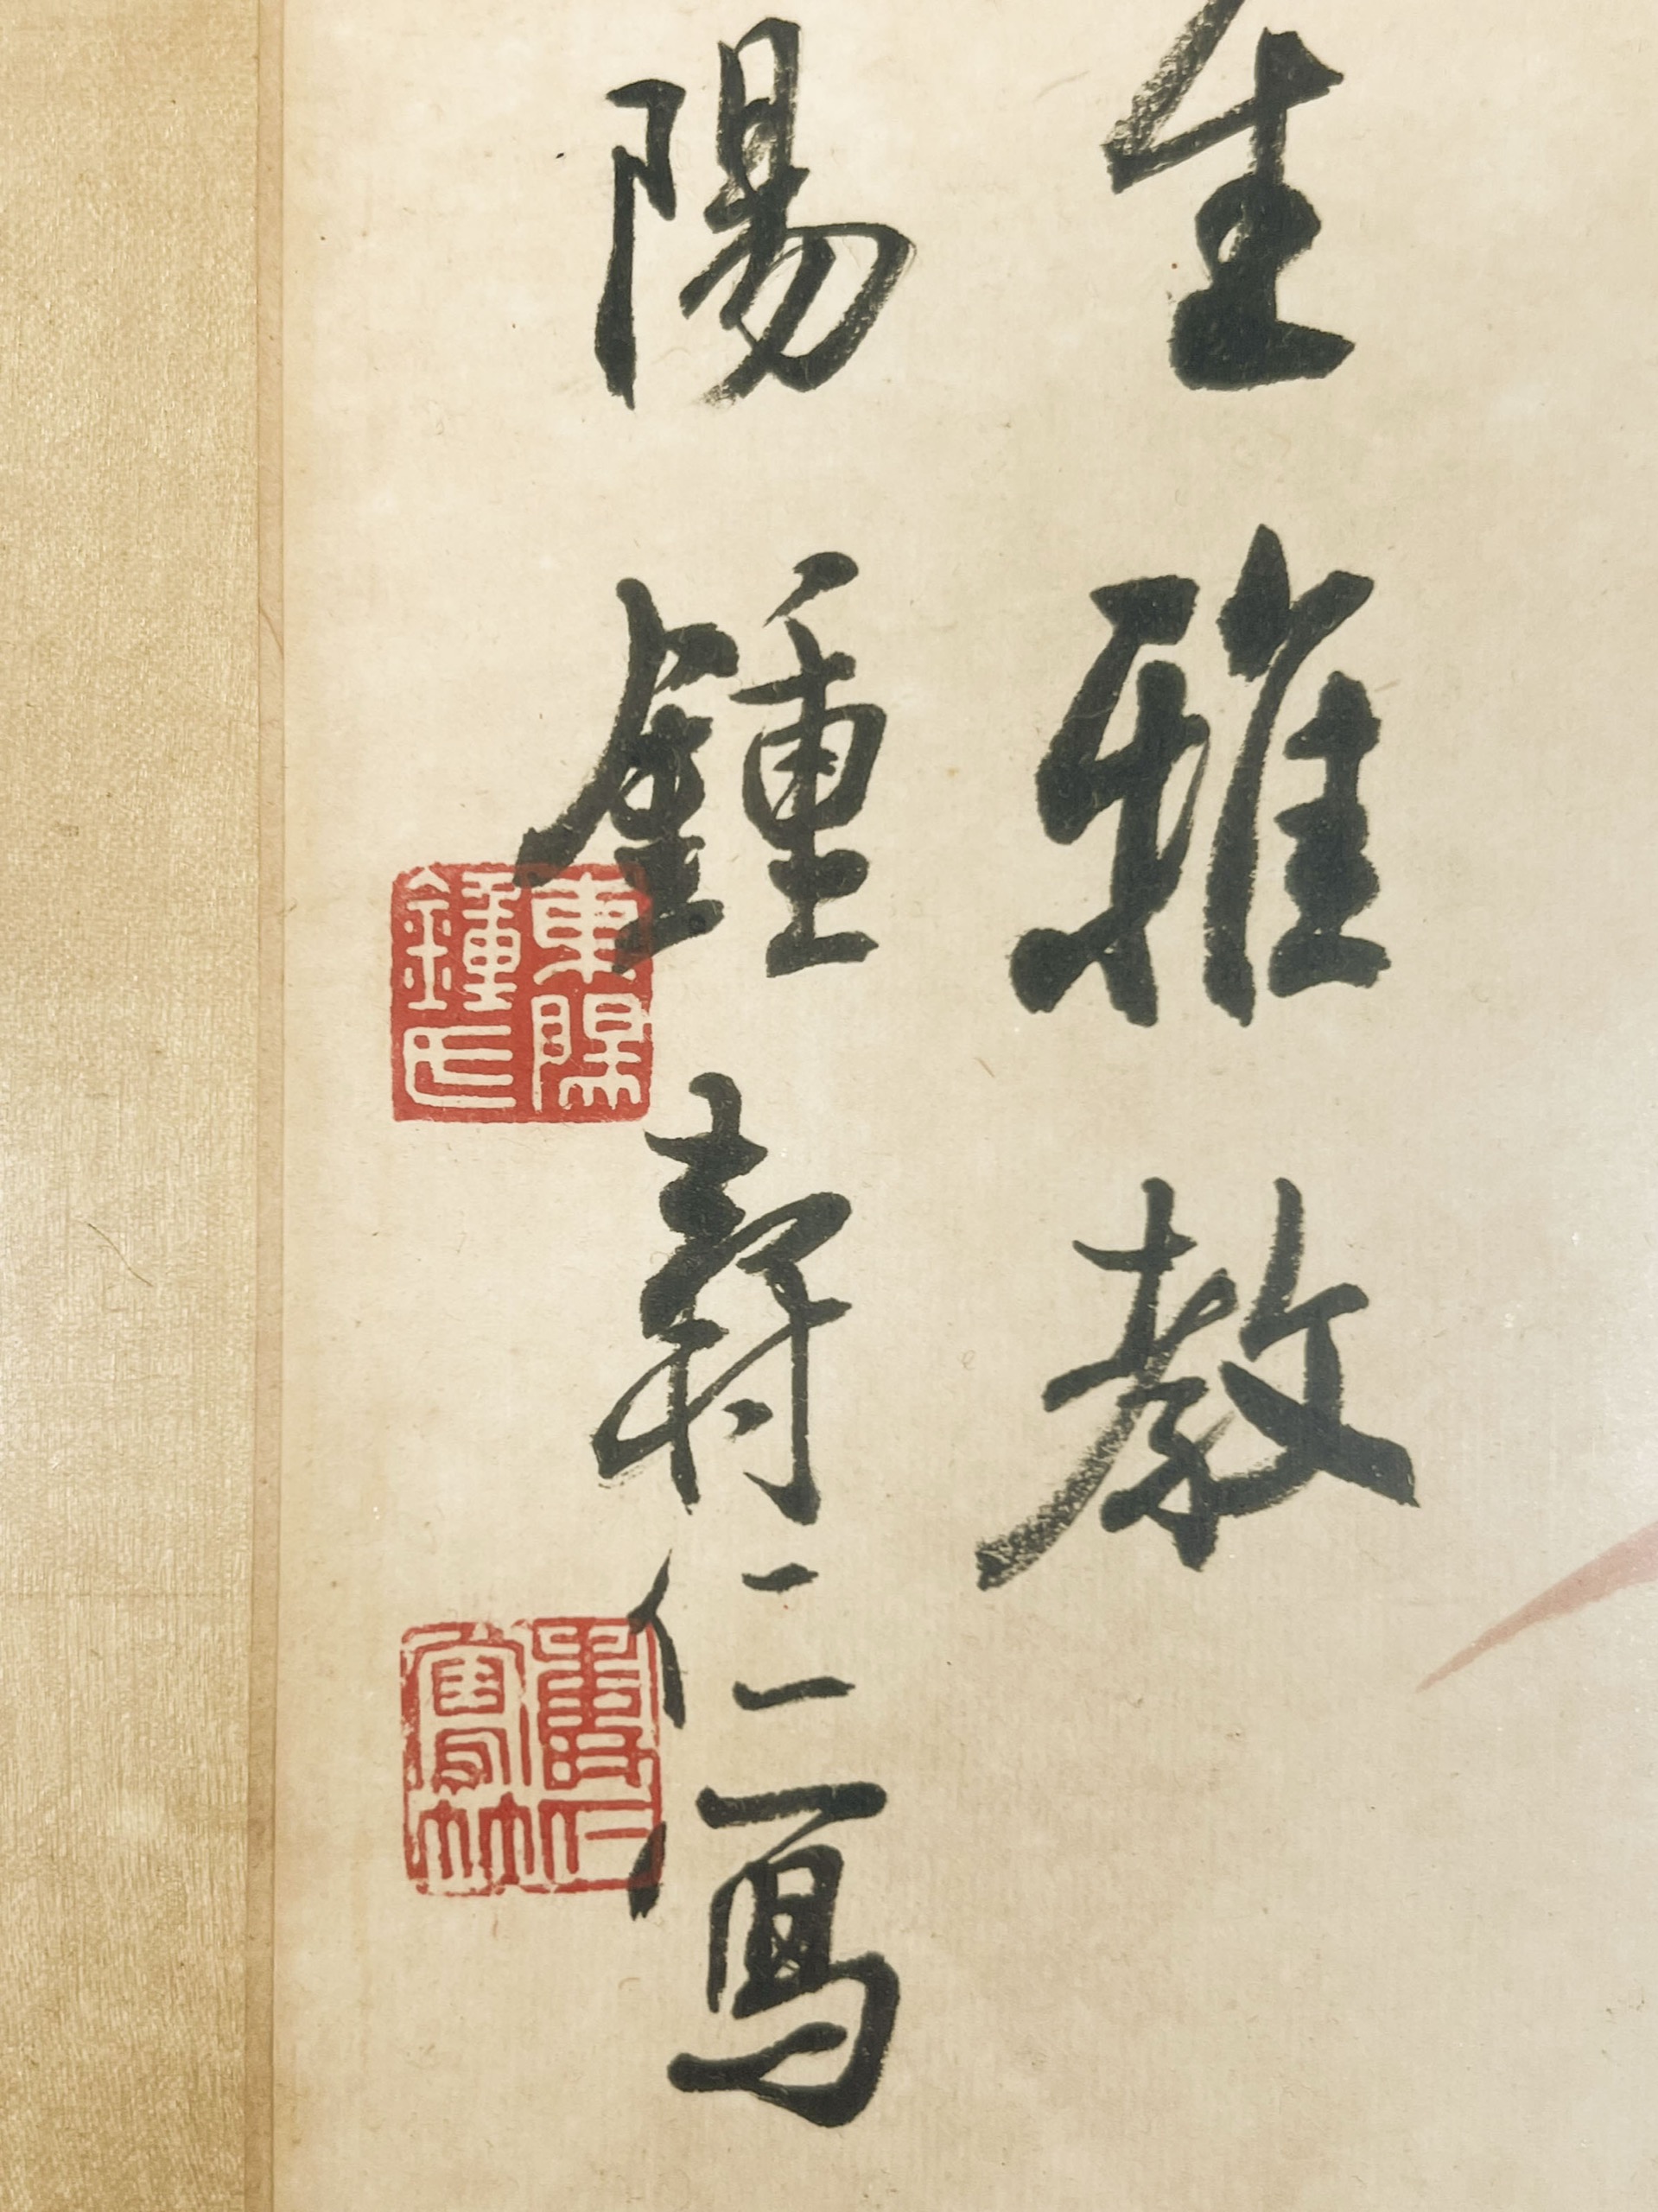 生雅教
陽鍾壽仁寫
東陽
鍾氏
壽仁
寫竹